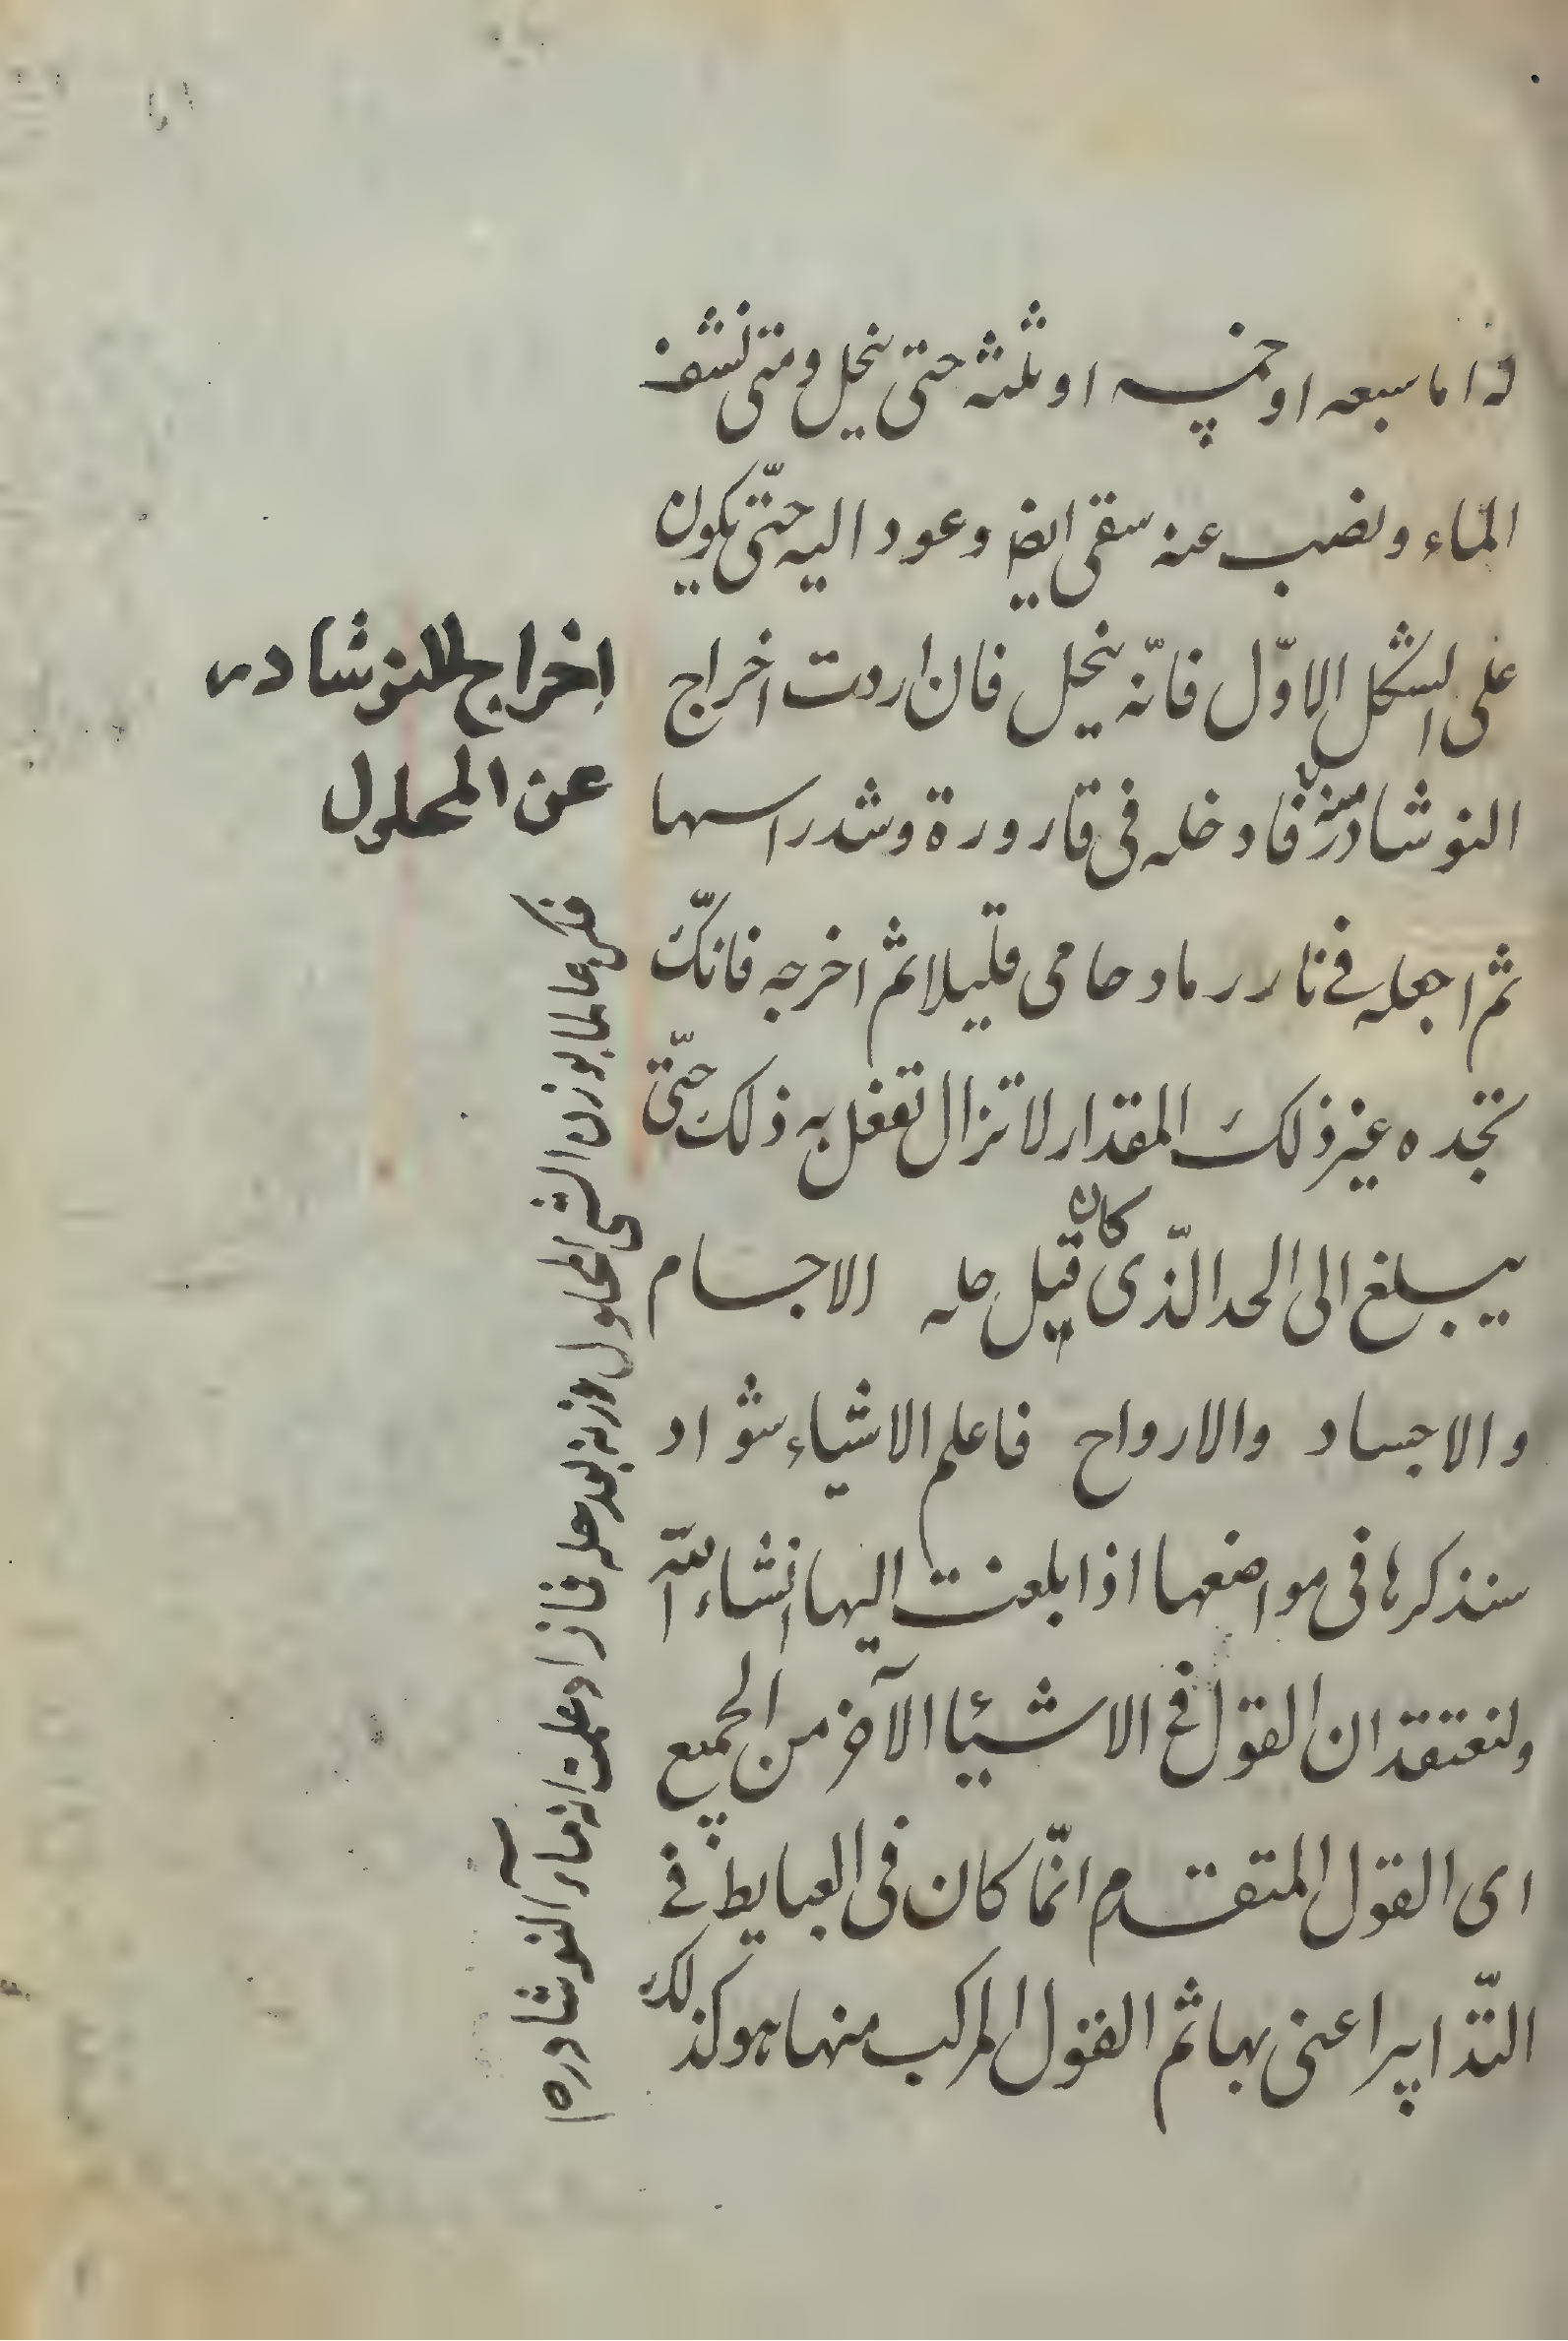 اما سبعه او خمسه او ثلثه حتى ينحل ومتى نشف
الماء ونضب عنه سقى ايضا وعود اليه حتّى يكون
على الشكل الاوّل فانّه ينحل فان اردت اخراج
النوشادر منه فادخله فى قارورة وشد راسها
ثم اجعله فى نار رماد حامى قليلا ثم اخرجه فانكّ
تجده غير ذلك المقدار لا تزال تفعل به ذلك حتّى
يبلغ الى الحد الّذى كان قبل حله الاجسام
والاجساد والارواح فاعلم الاشياء شواد
سنذكرها فى مواضعها اذا بلغت اليها انشاء اللّه
ولنعتقد ان القول فى الاشيئا الآخر من الجميع
اى القول المتقدم انّما كان فى العبايط فى
التّدابير اعنى بها ثم القول المركب منها هو كذلك
اخراج النوشادر
عن المحلول
فكن عالما بوزن الشى المحلول وزنه بعد حله فما زاد علمت انه ماء النوشادره